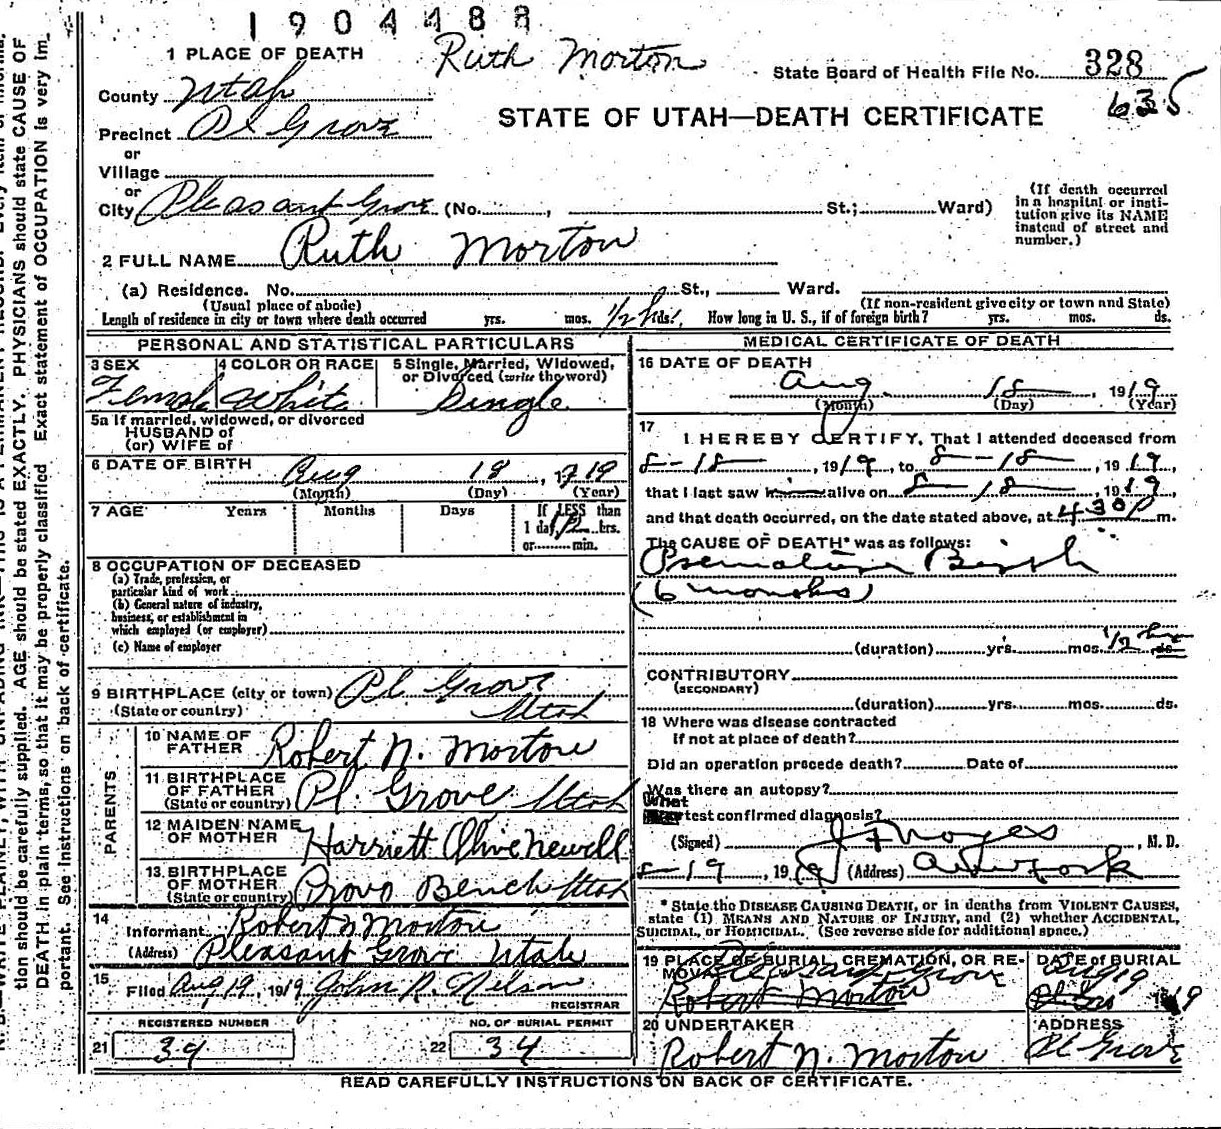 1904488
1 PLACE OF DEATH Ruth Morton
State Board of Health File No. 328
635
County Utah
STATE OF UTAH—DEATH CERTIFICATE
Precinct Pl Grove
or
Village
or
City Pleasant Grove (No. , St.; Ward)
(If death occurred
in a hospital or insti-
tution give its NAME
instead of street and
number.)
2 FULL NAME Ruth Morton
(a) Residence. No. St., Ward.
(Usual place of abode) (If non-resident give city or town and State)
Length of residence in city or town where death occurred yrs. mos. 1/2 h ds. How long in U. S., if of foreign birth? yrs. mos. ds.
PERSONAL AND STATISTICAL PARTICULARS
3 SEX 4 COLOR OR RACE 5 Single, Married, Widowed,
or Divorced (write the word)
Female White Single
5a If married, widowed, or divorced
HUSBAND of
(or) WIFE of
6 DATE OF BIRTH Aug 18, 1919
(Month) (Day) (Year)
7 AGE Years Months Days If LESS than
1 day 1/2 hrs.
or min.
8 OCCUPATION OF DECEASED
(a) Trade, profession, or
particular kind of work
(b) General nature of industry,
business, or establishment in
which employed (or employer)
(c) Name of employer
9 BIRTHPLACE (city or town) Pl Grove
(State or country) Utah
PARENTS
10 NAME OF
FATHER Robert N. Morton
11 BIRTHPLACE
OF FATHER
(State or country) Pl. Grove Utah
12 MAIDEN NAME
OF MOTHER Harriett Olive Newell
13 BIRTHPLACE
OF MOTHER
(State or country) Provo Bench Utah
14
Informant Robert N Morton
(Address) Pleasant Grove Utah
15
Filed Aug 19, 1919 John R. Nelson
REGISTRAR
REGISTERED NUMBER NO. OF BURIAL PERMIT
21 34 22 34
MEDICAL CERTIFICATE OF DEATH
16 DATE OF DEATH
Aug 18 1919
(Month) (Day) (Year)
17
I HEREBY CERTIFY, That I attended deceased from
8-18, 1919, to 8-18, 1919,
that I last saw h alive on 8-18, 1919
and that death occurred, on the date stated above, at 430 P m.
The CAUSE OF DEATH* was as follows:
Premature Birth
(6 months)
(duration) yrs. mos. 1/2 hr ds.
CONTRIBUTORY
(SECONDARY)
(duration) yrs. mos. ds.
18 Where was disease contracted
If not at place of death?
Did an operation precede death? Date of
Was there an autopsy?
What
test confirmed diagnosis?
(Signed) Noyes, M. D.
8-19, 1919 (Address) Am Fork
* State the DISEASE CAUSING DEATH, or in deaths from VIOLENT CAUSES,
state (1) MEANS AND NATURE OF INJURY, and (2) whether ACCIDENTAL,
SUICIDAL, or HOMICIDAL. (See reverse side for additional space.)
19 PLACE OF BURIAL, CREMATION, OR RE-
MOVAL Pleasant Grove
Robert Morton
DATE of BURIAL
Aug 19
19
20 UNDERTAKER
Robert N. Morton
ADDRESS
Pl Grove
READ CAREFULLY INSTRUCTIONS ON BACK OF CERTIFICATE.
tion should be carefully supplied. AGE should be stated EXACTLY. PHYSICIANS should state CAUSE OF
DEATH in plain terms, so that it may be properly classified. Exact statement of OCCUPATION is very im-
portant. See instructions on back of certificate.